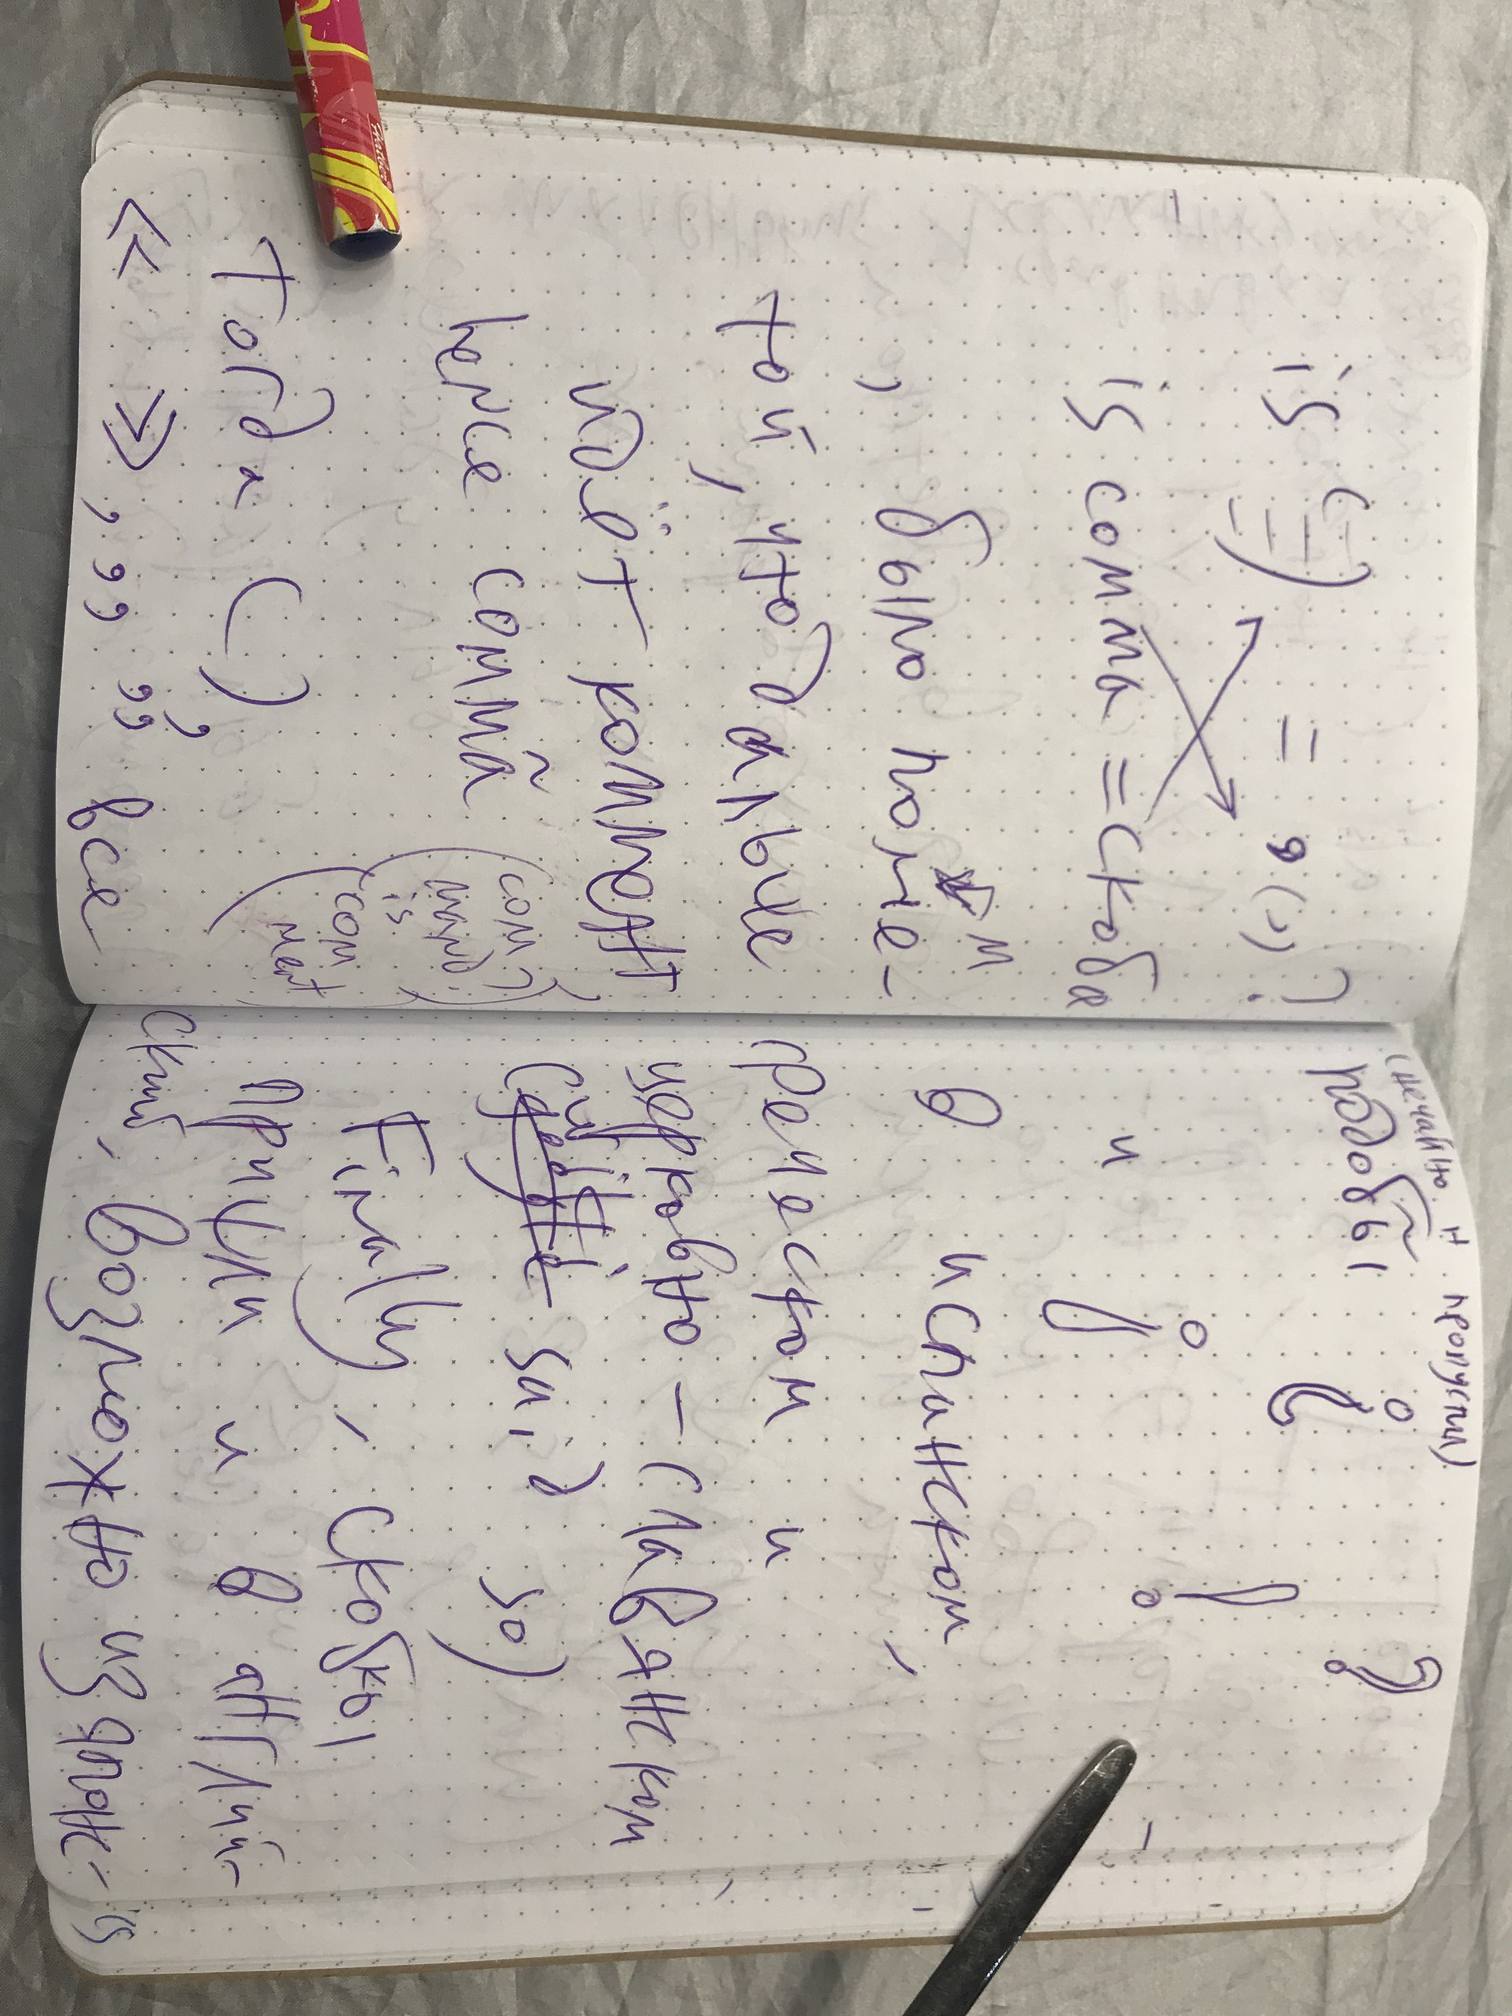 is (=) = (,)?
is comma = скоба
, было поме-
той, что дальше
идёт коммент
hence comma
(com
mand
is
com
ment
тогда ( )
« » , ,, ,, все
(нечайно пропустил)
подобы
и
в испанском,
греческом и
церковно-славянском
said so)
Finally, скобки
пришли и в англий-
ский, возможно из япон-
is